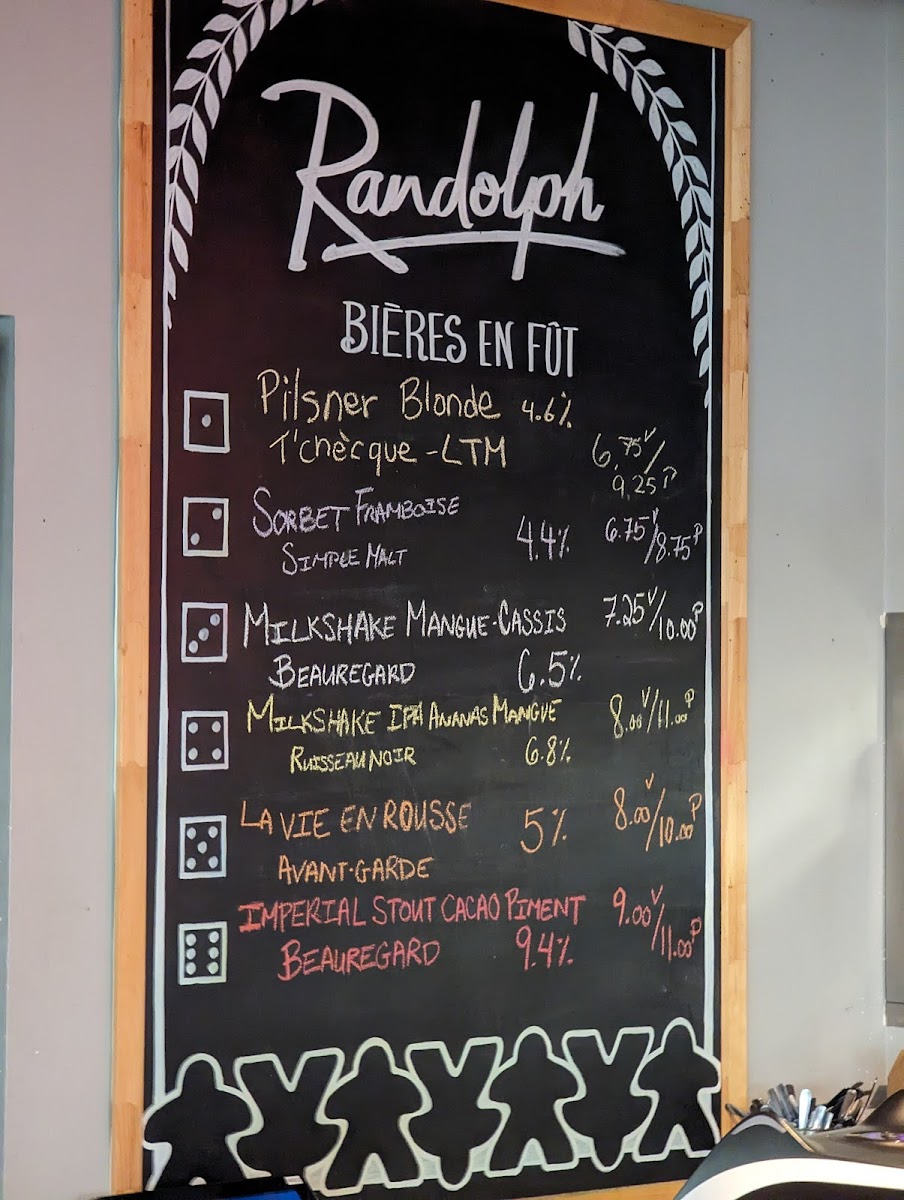 Randolph
BIÈRES EN FÛT
Pilsner Blonde 4.6%
T'chècque - LTM 6,75 V/
9,25 P
SORBET FRAMBOISE
SIMPLE MALT 4.4% 6.75 V/8.75 P
MILKSHAKE MANGUE-CASSIS 7.25 V/10.00 P
BEAUREGARD 6.5%
MILKSHAKE IPA ANANAS MANGUE 8.00 V/11.00 P
RUISSEAU NOIR 6.8%
LA VIE EN ROUSSE 5% 8.00 V/10.00 P
AVANT-GARDE
IMPERIAL STOUT CACAO PIMENT 9.00 V/11.00 P
BEAUREGARD 9.4%